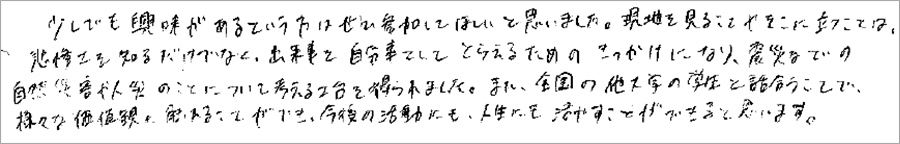 少しでも興味があるという方はぜひ参加してほしいと思いました。現地を見ることやそこに立つことは、
悲惨さを知るだけでなく、出来事を自分事としてとらえるためのきっかけになり、震災などの
自然災害や人災のことについて考える土台を得られました。また、全国の他大学の学生と話合うことで、
様々な価値観に触れることができ、今後の活動にも、人生にも活かすことができると思います。